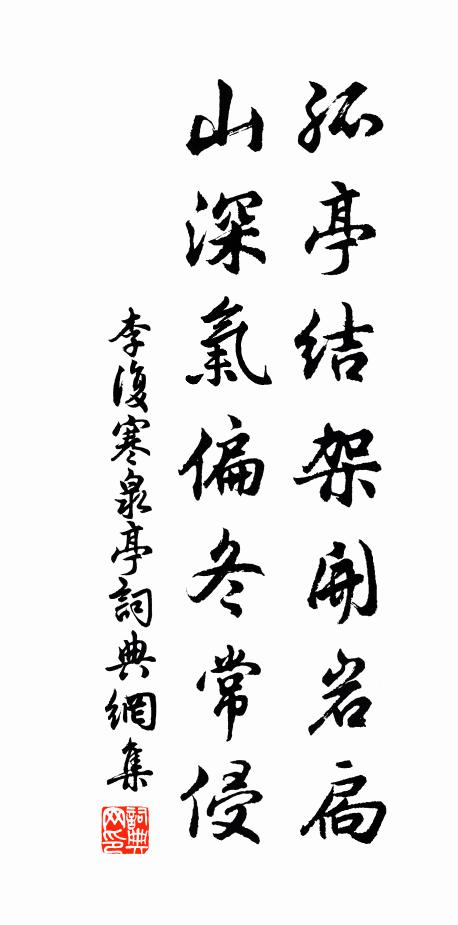 孤亭结架開岩扃
山深氣偏冬常侵
李復寒泉亭詞典網集
詞典網印